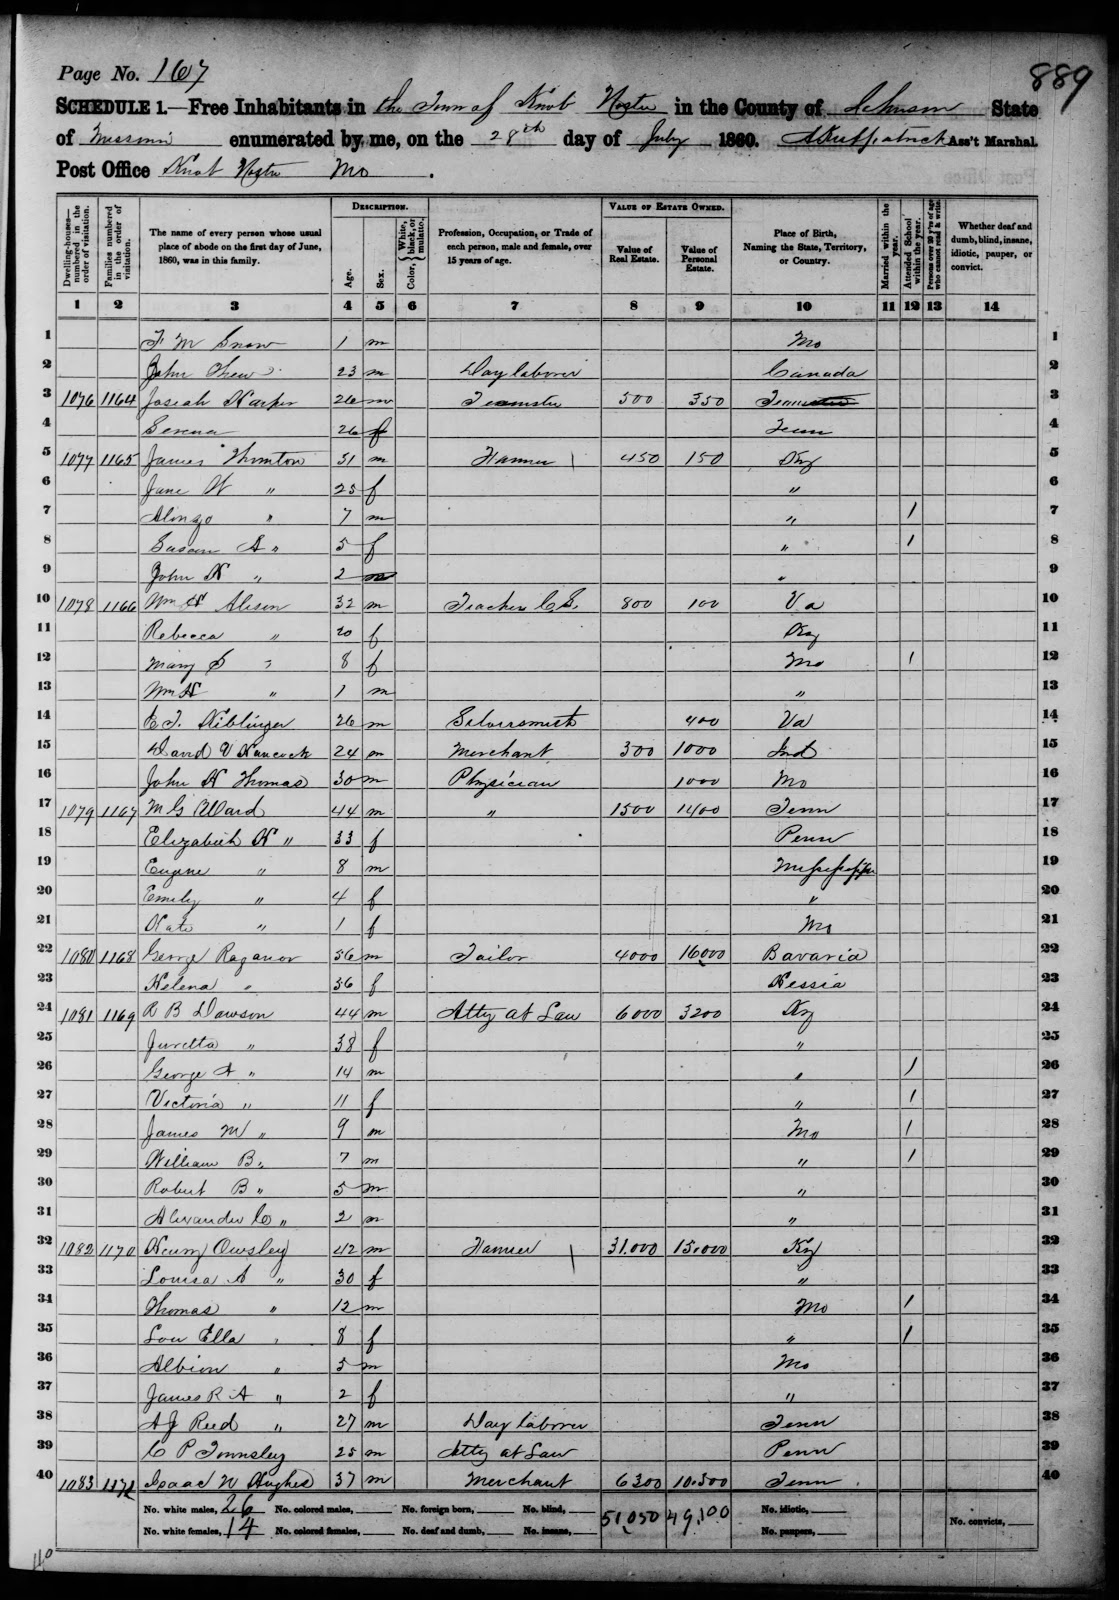 Page No. 167
889
SCHEDULE 1.—Free Inhabitants in the Town of Knob Noster in the County of Johnson State
of Missouri enumerated by me, on the 28th day of July 1860. A Kirkpatrick Ass't Marshal.
Post Office Knob Noster Mo.
Dwelling-houses—numbered in the order of visitation. Families numbered in the order of visitation. The name of every person whose usual place of abode on the first day of June, 1860, was in this family. DESCRIPTION. Age. Sex. Color, {White, black, or mulatto. Profession, Occupation, or Trade of each person, male and female, over 15 years of age. VALUE OF ESTATE OWNED. Value of Real Estate. Value of Personal Estate. Place of Birth, Naming the State, Territory, or Country. Married within the year. Attended School within the year. Persons over 20 y'rs of age who cannot read & write. Whether deaf and dumb, blind, insane, idiotic, pauper, or convict.
1 2 3 4 5 6 7 8 9 10 11 12 13 14
1 F M Snow 1 m Mo 1
2 John 23 m Day laborer Canada 2
3 1076 1164 Josiah Harper 26 m Teamster 500 350 3
4 Serena 26 f Tenn 4
5 1077 1165 James Thornton 31 m Farmer 450 150 Ky 5
6 Jane W " 25 f " 6
7 Alonzo " 7 m " / 7
8 Susan A " 5 f " / 8
9 John H " 2 m " 9
10 1078 1166 Wm H Alison 32 m Teacher C.S. 800 100 Va 10
11 Rebecca " 20 f Ky 11
12 Mary S " 8 f Mo / 12
13 Wm H " 1 m " 13
14 E T. Niblinger 26 m Silversmith 400 Va 14
15 David V Hancock 24 m Merchant 300 1000 Ind 15
16 John H Thomas 30 m Physician 1000 Mo 16
17 1079 1167 M G Ward 44 m " 1500 1400 Tenn 17
18 Elizabeth H " 33 f Penn 18
19 Eugene " 8 m Mississippi 19
20 Emily " 4 f " 20
21 Kate " 1 f Mo 21
22 1080 1168 George Raganor 56 m Tailor 4000 16000 Bavaria 22
23 Helena " 36 f Hessia 23
24 1081 1169 R B Dawson 44 m Atty at Law 6000 3200 Ky 24
25 Juretta " 38 f " 25
26 George A " 14 m " / 26
27 Victoria " 11 f " / 27
28 James M " 9 m Mo / 28
29 William B " 7 m " / 29
30 Robert B " 5 m " 30
31 Alexander C " 2 m " 31
32 1082 1170 Henry Owsley 42 m Farmer 31.000 15.000 Ky 32
33 Louisa A " 30 f " 33
34 Thomas " 12 m Mo / 34
35 Lou Ella " 8 f " / 35
36 Albion " 5 m Mo 36
37 James R A " 2 f " 37
38 A J Reed " 27 m Day laborer Tenn 38
39 C P Townsley 25 m Atty at Law Penn 39
40 1083 1171 Isaac W Hughes 37 m Merchant 6300 10.500 Tenn 40
No. white males, 26 No. colored males, No. foreign born, No. blind, 51,050 49,100 No. idiotic,
No. white females, 14 No. colored females, No. deaf and dumb, No. insane, No. paupers, No. convicts,
40